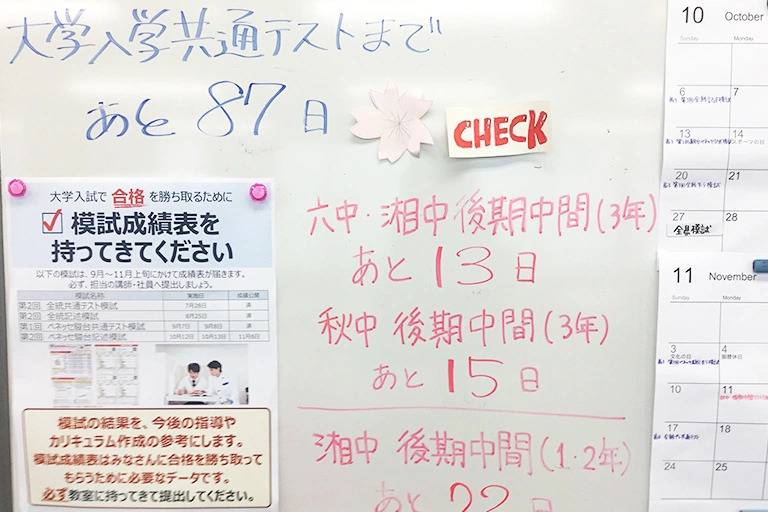 大学入学共通テストまで
あと 87日
CHECK
六中・湘中 後期中間(3年)
あと 13日
秋中 後期中間(3年)
あと 15日
湘中 後期中間(1・2年)
あと 22日
大学入試で 合格 を勝ち取るために
模試成績表を
持ってきてください
以下の模試は、9月〜11月上旬にかけて成績表が届きます。
必ず、担当の講師・社員へ提出しましょう。
模試名称 実施日 成績公開
第2回 全統共通テスト模試 7月28日 済
第2回 全統記述模試 8月25日 済
第1回 ベネッセ駿台共通テスト模試 9月7日 9月8日 済
第2回 ベネッセ駿台記述模試 10月12日 10月13日 11月6日
模試の結果を、今後の指導や
カリキュラム作成の参考にします。
模試成績表はみなさんに合格を勝ち取って
もらうために必要なデータです。
必ず教室に持ってきて提出してください。
10 October
Sunday Monday
6 7
13 14
スポーツの日
20 21
27 28
全県模試
11 November
Sunday Monday
3 4
文化の日 振替休日
10 11
17 18
24 25